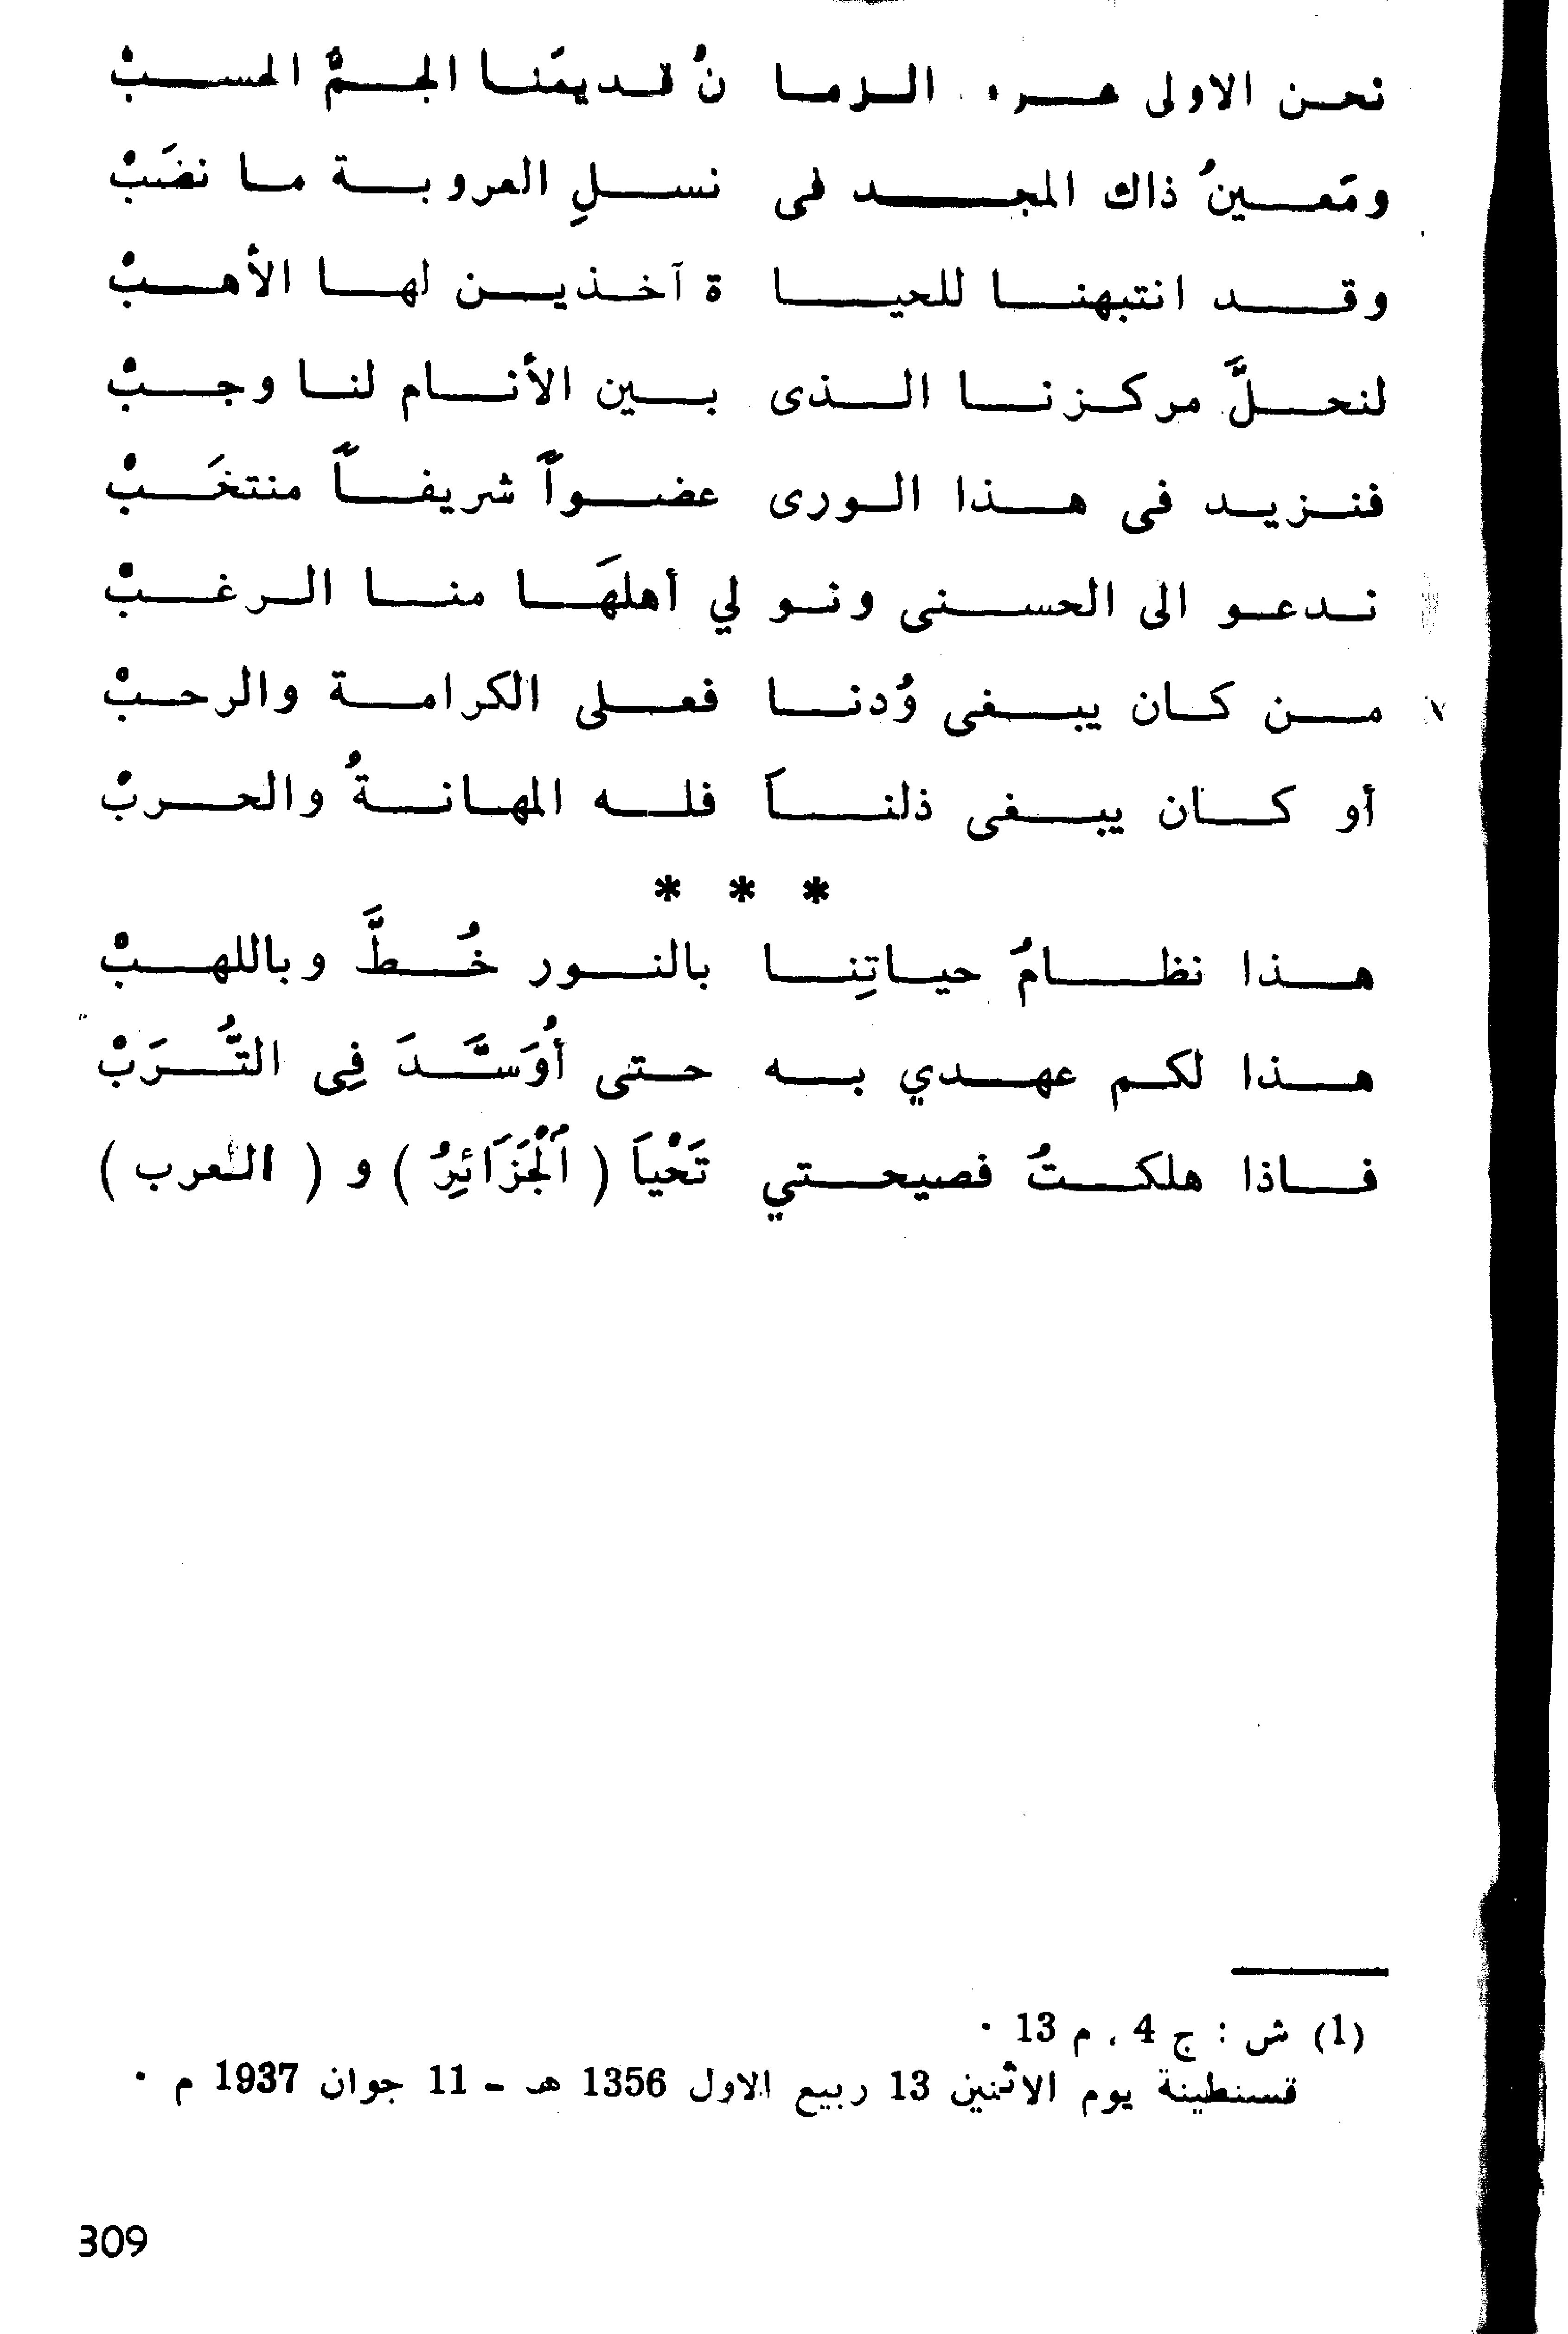 نحن الاولى الزما نُ قديمَنا الجمُّ الحسبْ
ومَعينُ ذاك المجد فى نسلِ العروبة ما نضَبْ
وقد انتبهنا للحيا ة آخذين لها الأهبْ
لنحلَّ مركزنا الذى بين الأنام لنا وجبْ
فنزيد فى هذا الورى عضواً شريفاً منتخَبْ
ندعو الى الحسنى ونو لي أهلهَا منا الرغبْ
من كان يبغى وُدنا فعلى الكرامة والرحبْ
أو كان يبغى ذلناَ فله المهانةُ والحربْ
* * *
هذا نظامُ حياتِنا بالنور خُطَّ وباللهبْ
هذا لكم عهدي به حتى أُوَسَّدَ فِى التُّرَبْ
فاذا هلكتُ فصيحتي تَحْياَ ( اَلْجَزَائِرُ ) و ( العرب )
(1) ش : ج 4 ، م 13 ٠
قسنطينة يوم الاثنين 13 ربيع الاول 1356 هـ - 11 جوان 1937 م ٠
309